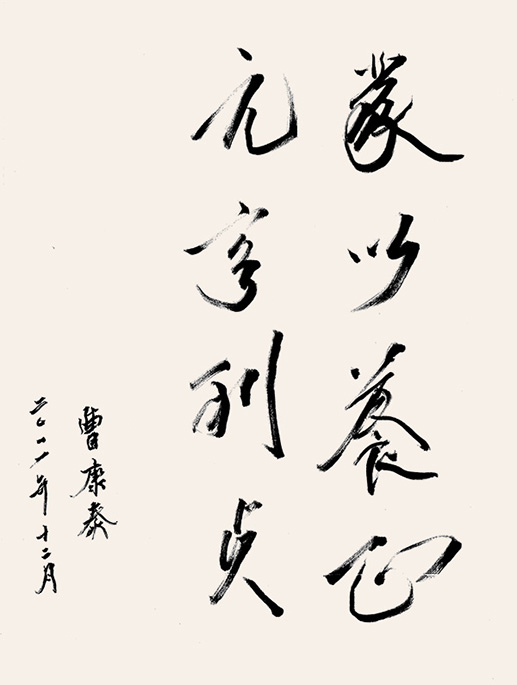 蒙以養正
元亨利貞
曹康泰
二〇一一年十二月